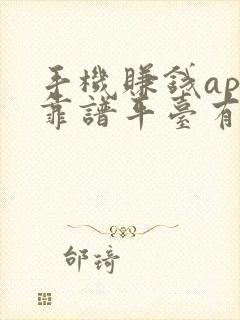 手機賺錢ap
靠譜平臺有
邰琦